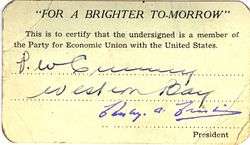 "FOR A BRIGHTER TO-MORROW"
This is to certify that the undersigned is a member of
the Party for Economic Union with the United States.
P. W
Western Bay
President